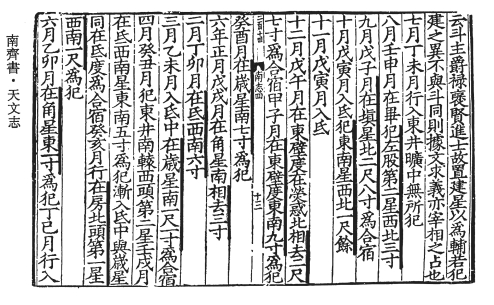 云斗主爵祿褒賢進士故置建星以為輔若犯
建之異不與斗同則據文求義亦宰相之占也
七月丁未月行入東井曠中無所犯
八月壬申月在畢犯左股第二星西北三寸
九月戊子月在填星北二尺八寸為合宿
十月戊寅月入氐犯東南星西北一尺餘
十一月戊寅月入氐
十二月戊午月在東壁度在熒惑北相去二尺
七寸為合宿甲子月在東壁度東南九寸為犯
南志四
十三
癸酉月在歲星南七寸為犯
六年正月戊戌月在角星南相去三寸
二月丁卯月在氐西南六寸
三月乙未月入氐中在歲星南一尺一寸為合宿
四月癸丑月犯東井南轅西頭第二星壬戌月
在氐西南星東南五寸為犯漸入氐中與歲星
同在氐度為合宿癸亥月行在房北頭第一星
西南一尺為犯
六月乙卯月在角星東一寸為犯丁巳月行入
南齊書·天文志